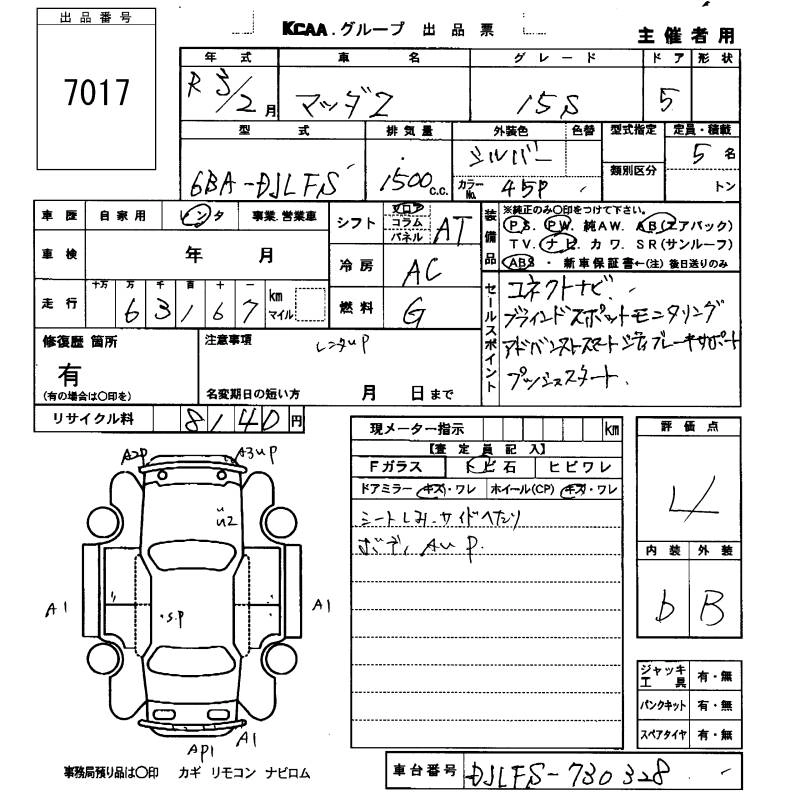 出品番号
7017
KCAA.グループ 出品票
主催者用
年式 車名 グレード ドア 形状
R3/2月 マツダ2 15S 5
型式 排気量 外装色 色替 型式指定 定員・積載
6BA-DJLFS 1500c.c. シルバー 5名
カラーNo. 45P 類別区分 トン
車歴 自家用 レンタ 事業.営業車
シフト フロア コラム パネル AT
装備品
※純正のみ○印をつけて下さい。
PS. PW. 純AW. AB(エアバック)
TV. ナビ. カワ. SR(サンルーフ)
ABS・新車保証書←(注)後日送りのみ
車検 年 月
冷房 AC
走行 十万 万 千 百 十 一
63167 km マイル
燃料 G
セールスポイント
コネクトナビ.
ブラインドスポットモニタリング
アドバンストスマートシティブレーキサポート
プッシュスタート.
修復歴 箇所
有
(有の場合は○印を)
注意事項
レンタUP
名変期日の短い方 月 日まで
リサイクル料 8140円
現メーター指示 km
【査定員記入】
Fガラス トビ石 ヒビワレ
ドアミラー キズ・ワレ ホイール(CP) キズ・ワレ
シートしみ.サイドへたり
ボディ AUP.
評価点
4
内装 外装
b B
A2P A3UP
U2
A1 A1
・S.P
AP1 A1
ジャッキ工具 有・無
パンクキット 有・無
スペアタイヤ 有・無
事務局預り品は○印 カギ リモコン ナビロム
車台番号 DJLFS-730328